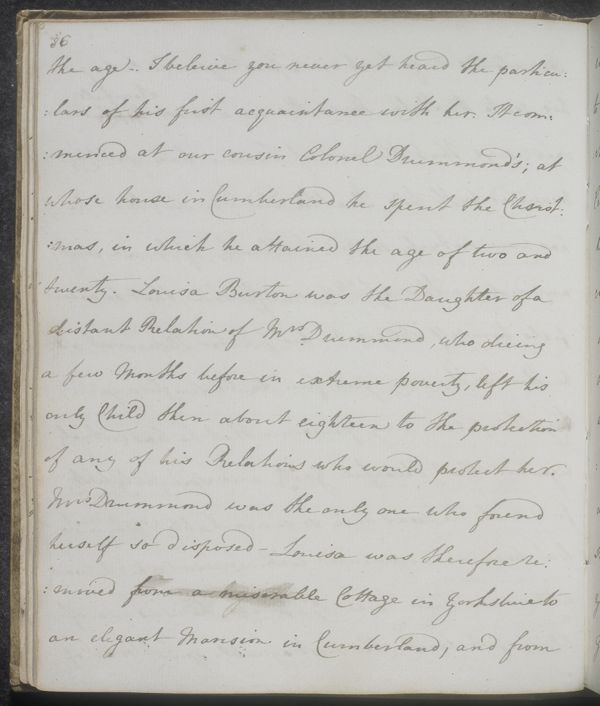 86
the age - I beleive you never yet heard the particu:
:lars of his first acquaintance with her. It com:
:menced at our cousin Colonel Drummond's; at
whose house in Cumberland he spent the Christ:
:mas, in which he attained the age of two and
twenty. Louisa Burton was the Daughter of a
distant Relation of Mrs Drummond, who dieing
a few Months before in extreme poverty, left his
only Child then about eighteen to the protection
of any of his Relations who would protect her.
Mrs Drummond was the only one who found
herself so disposed - Louisa was therefore re:
:moved from a miserable Cottage in Yorkshire to
an elegant Mansion in Cumberland, and from